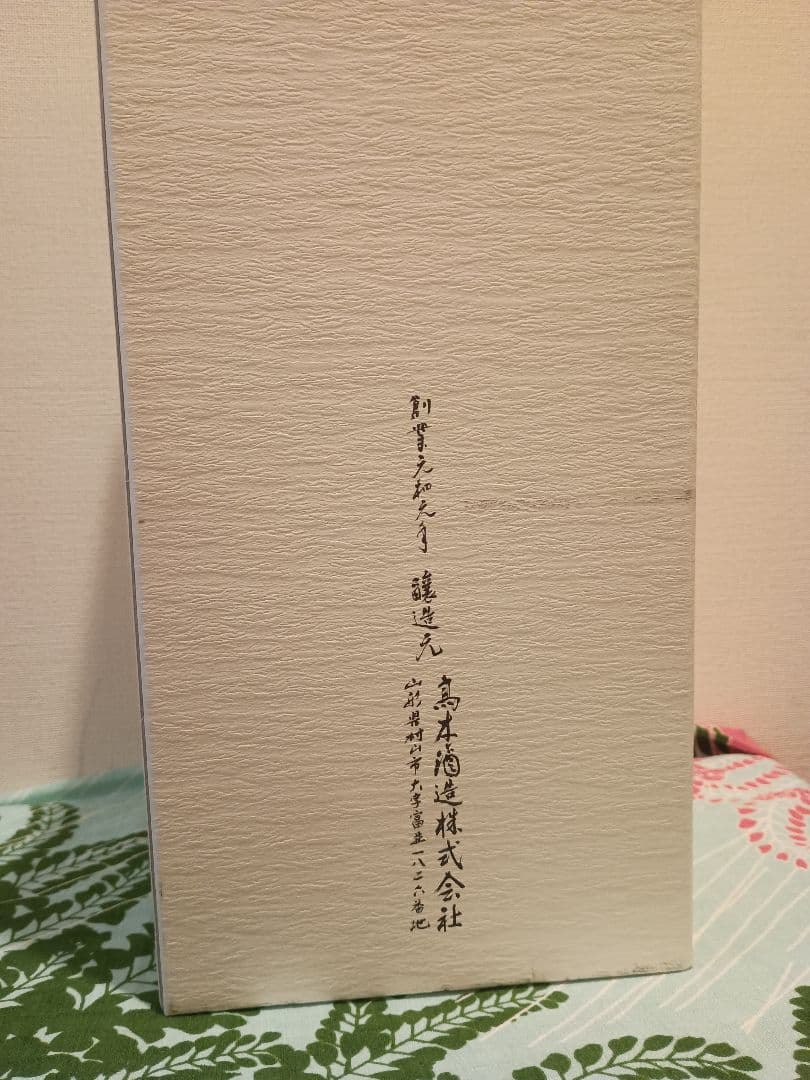 創業元和元年 醸造元
高木酒造株式会社
山形県村山市大字富並一八二六番地